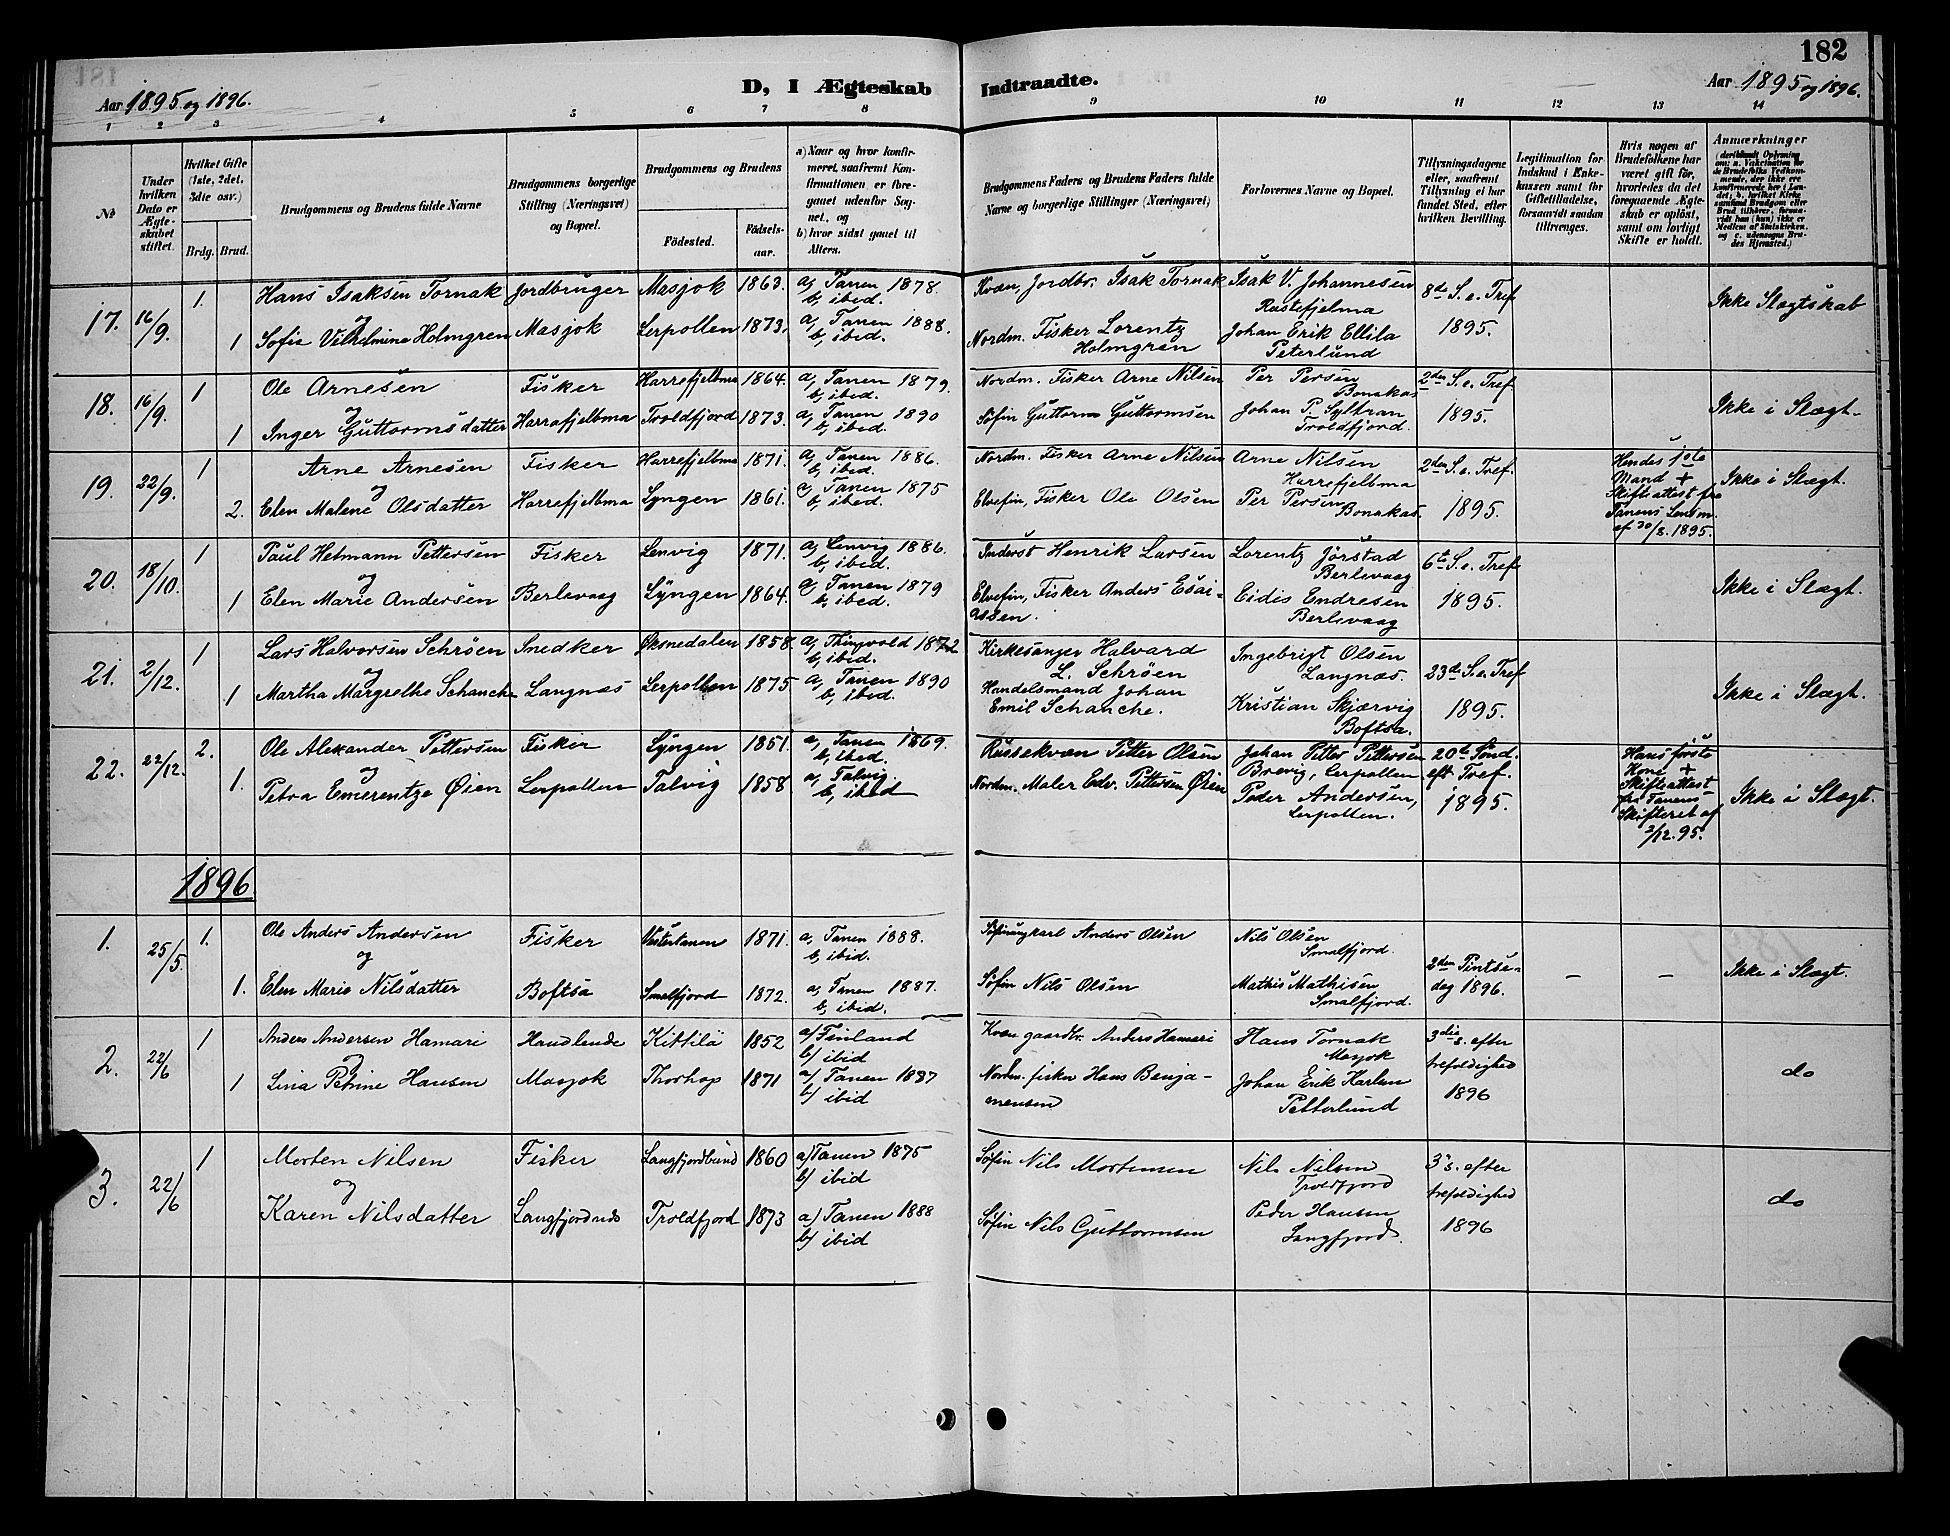 182
Aar 1895 og 1896.
D, I Ægteskab Indtraadte.
Aar 1895 og 1896.
1 2 3 4 5 6 7 8 9 10 11 12 13 14
№
Under hvilken Dato er Ægteskabet stiftet.
Hvilket Gifte (1ste, 2det, 3die osv.)
Brdg. Brud.
Brudgommens og Brudens fulde Navne
Brudgommens borgerlige Stilling (Næringsvei) og Bopæl.
Brudgommens og Brudens
Fødested.
Fødselsaar.
a) Naar og hvor konfirmeret, saafremt Konfirmationen er foregaaet udenfor Sognet, og
b) hvor sidst gaaet til Alters.
Brudgommens Faders og Brudens Faders fulde Navne og borgerlige Stillinger (Næringsvei)
Forlovernes Navne og Bopæl.
Tillysningsdagene eller, saafremt Tillysning ei har fundet Sted, efter hvilken Bevilling.
Legitimation for Indskud i Enkekassen samt for Giftetilladelse, forsaavidt saadan tiltrænges.
Hvis nogen af Brudefolkene har været gift før, hvorledes da det foregaaende Ægteskab er opløst, samt om lovligt Skifte er holdt.
Anmærkninger
17. 16/9. 1. Hans Isaksen Tornak Jordbruger Masjok 1863. a, Tanen 1878. b, ibid. Kvæn, Jordbr. Isak Tornak Isak V. Johannesen Rustefjelma 8de S. e. Tref 1895. Ikke Slægtskab
og
1 Sofie Vilhelmine Holmgren Masjok Lerpollen 1873. a, Tanen 1888. b, ibid. Nordm. Fisker Lorentz Holmgren Johan Erik Ellila Peterlund
18. 16/9. 1 Ole Arnesen Fisker Harrefjelbma 1864. a, Tanen 1879. b, ibid. Nordm. Fisker Arne Nilsen Per Persen Bonakas 2den S. e. Tref 1895. Ikke i Slægt.
og
1 Inger Guttormsdatter Harrefjelbma Troldfjord 1873. a, Tanen 1890 b, ibid. Søfin Guttorm Guttormsen Johan P. Syltran Troldfjord.
19. 22/9. 1 Arne Arnesen Fisker Harrefjelbma 1871. a, Tanen 1886. b, ibid. Nordm. Fisker Arne Nilsen Arne Nilsen Harrefjelbma 2den S. e. Tref. 1895. Hendes 1ste Mand + Skifteattest fra Tanens Lensm. af 30/8. 1895. Ikke i Slægt.
og
2. Elen Malene Olsdatter Harrefjelbma Lyngen 1861. a, Tanen 1875 b, ibid. Elvefin, Fisker Ole Olsen Per Persen Bonakas.
20. 18/10. 1 Paul Hetmann Pettersen Fisker Lenvig 1871. a, Lenvig 1886. b, ibid. Inderst Henrik Larsen Lorentz Jørstad Berlevaag 6te S. e. Tref 1895. Ikke i Slægt.
og
1 Elen Marie Andersen Berlevaag Lyngen 1864. a, Tanen 1879 b, ibid. Elvefin, Fisker Anders Esaiassen. Eidis Endresen Berlevaag
21. 2/12. 1 Lars Halvorsen Schrøen Snedker Øksnedalen 1858. a, Thingvold 1872 b, ibid. Kirkesanger Halvard L. Schrøen Ingebrigt Olsen Langnæs. 23de S. e. Tref 1895. Ikke i Slægt.
og
1 Martha Margrethe Schanche Langnæs Lerpollen 1875 a, Tanen 1890 b, ibid. Handelsmand Johan Emil Schanche. Kristian Skjærvig Boftsa.
22. 22/12. 2. Ole Alexander Pettersen Fisker Lyngen 1851. a, Tanen 1869. b, ibid. Russekvæn Petter Olsen Johan Petter Pettersen Brevig, Lerpollen. 20de Sønd. eft Tref. 1895. Hans første Kone + Skifteattest fra Tanens Skifteret af 2/12. 95. Ikke i Slægt.
og
1. Petra Emerentze Øien Lerpollen Talvig 1858 a, Talvig. b, ibid Nordm. Maler Edv. Pettersen Øien Peder Andersen, Lerpollen.
1896.
1. 25/5. 1. Ole Anders Andersen Fisker Vestertanen 1871. a, Tanen 1888. b, ibid. Anders Olsen Nils Olsen Smalfjord. 2den Pintsedag 1896. – – Ikke i Slægt.
og
1. Elen Marie Nilsdatter Boftsa Smalfjord 1872. a, Tanen 1887. b, ibid. Søfin Nils Olsen Mathis Mathisen Smalfjord.
2. 22/6 1 Anders Andersen Hamari Handlende Kittilä 1852 a/ Finland b/ ibid Kvæn gaardbr. Anders Hamari Hans Tornak Masjok 3die s. efter trefoldighed 1896 do
og
1 Lina Petrine Hansen Masjok Thorhop 1871 a/ Tanen 1887 b/ ibid Nordm. fisker Hans Benjamensen Johan Erik Harlem Petterlund
3. 22/6 1 Morten Nilsen Fisker Langfjordbund 1860 a/ Tanen 1875 b/ ibid Søfin Nils Mortensen Nils Nilsen Troldfjord 3' s. efter trefoldighed 1896 do
og
Karen Nilsdatter Langfjordnæs Troldfjord 1873 a/ Tanen 1888 b/ ibid Søfin Nils Guttormsen Peder Hansen Langfjord.